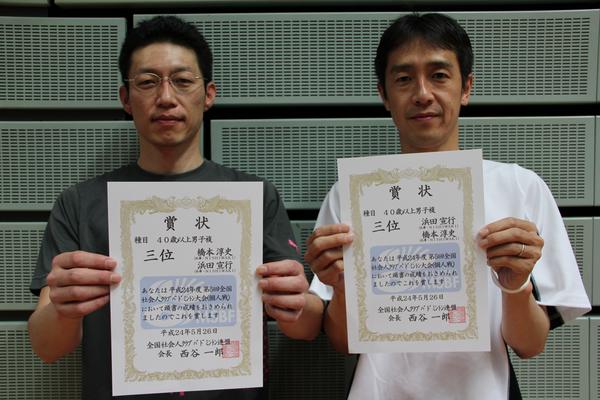 賞状
種目 40歳以上男子複
三位
橋本 淳史
浜田 宣行
あなたは 平成24年度 第5回全国
社会人クラブバドミントン大会(個人戦)
において頭書の成績をおさめられ
ましたのでこれを賞します
平成24年5月26日
全国社会人クラブバドミントン連盟
会長 西谷 一郎
賞状
種目 40歳以上男子複
三位
浜田 宣行
橋本 淳史
あなたは 平成24年度 第5回全国
社会人クラブバドミントン大会(個人戦)
において頭書の成績をおさめられ
ましたのでこれを賞します
平成24年5月26日
全国社会人クラブバドミントン連盟
会長 西谷 一郎